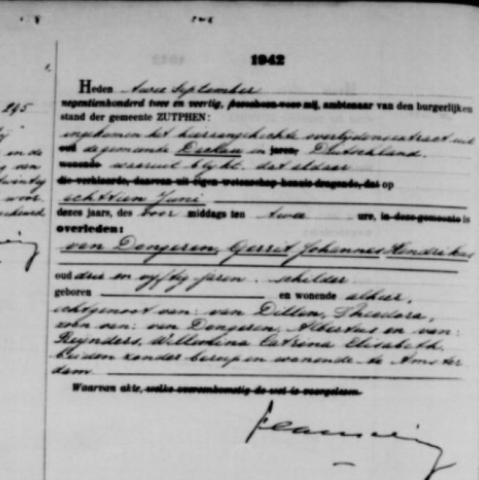 1942
Heden twee September
negentienhonderd twee en veertig, verscheen voor mij, ambtenaar van den burgerlijken
stand der gemeente ZUTPHEN:
ingekomen het hieraangehechte overlijdensextract uit
de gemeente Dachau in Duitschland.
wonende waaruit blijkt, dat aldaar
die verklaarde, daarvan uit eigen wetenschap kennis dragende, dat op
achttien Juni
dezes jaars, des voor middags ten twee ure, in deze gemeente is
overleden:
van Dongeren, Gerrit Johannes Hendrikus
oud drie en vijftig jaren, schilder
geboren en wonende alhier,
echtgenoot van: van Dillen, Theodora,
zoon van: van Dongeren, Albertus en van:
Reijnders, Willemina Catrina Elisabeth,
beiden zonder beroep en wonende te Amster
dam.
Waarvan akte, welke overeenkomstig de wet is voorgelezen.
245
en de
voor